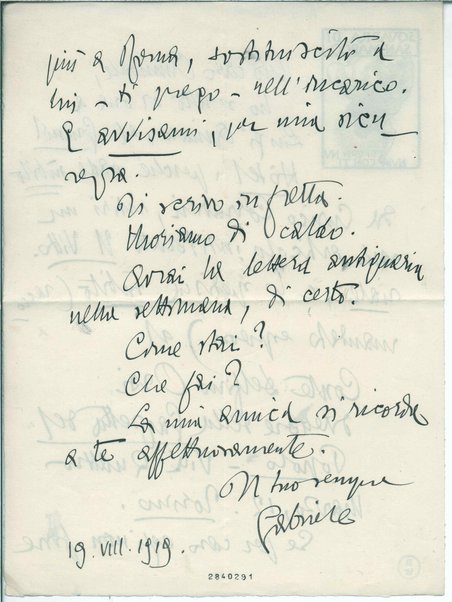 più a Roma, sostituiscilo a
lui – ti prego – nell'incarico.
E avvisami, per mia sicu
rezza.
Ti scrivo in fretta
Moriamo di caldo.
Avrai la lettera antiquaria
nella settimana, di certo.
Come stai?
Che fai?
La mia amica si ricorda
a te affettuosamente.
Il tuo sempre
Gabriele
19. VIII. 1919.
2840291